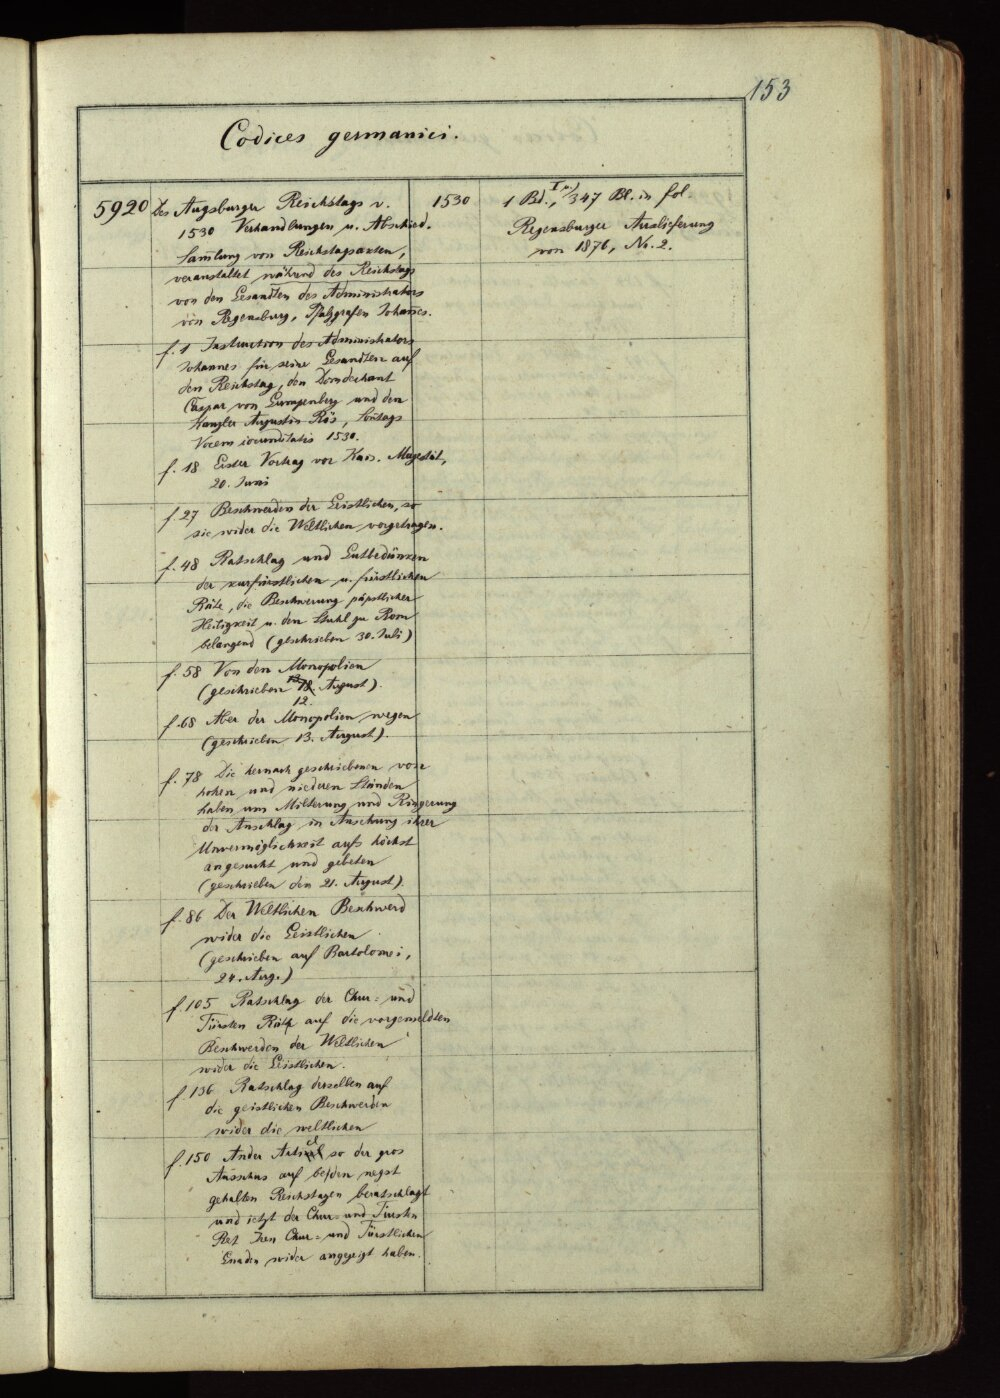 153
Codices germanici.
5920 Des Augsburger Reichstags v. 1530 1 Bd., I u. 347 Bl. in fol.
1530 Verhandlungen u. Abschied. Regensburger Auslieferung
Samlung von Reichstagsakten, von 1876, Nr. 2.
veranstaltet während des Reichstags
von den Gesandten des Administrators
von Regensburg, Pfalzgrafen Johannes.
f. 1 Instruction des Administrators
Johannes für seine Gesandten auf
den Reichstag, den Domdechant
Caspar von Gumpenberg und den
Kanzler Augustin Rös, Sontags
Vocem iocunditatis 1530.
f. 18 Erster Vortrag vor Kais. Majestät,
20. Juni
f. 27 Beschwerden der Geistlichen, so
sie wider die Weltlichen vorgetragen.
f. 48 Ratschlag und Gutbedünken
der kurfürstlichen u. fürstlichen
Räte, die Beschwerung päpstlicher
Heiligkeit u. den Stuhl zu Rom
belangend (geschrieben 30. Juli)
f. 58 Von den Monopolien
(geschrieben 12. August).
12.
f. 68 Aber der Monopolien wegen
(geschrieben 13. August).
f. 78 Die hernach geschriebenen von
hohen und niederen Ständen
haben um Milterung und Ringerung
der Anschlag in Ansehung ihrer
Unvermöglichkeit aufs höchst
angesucht und gebeten
(geschrieben den 21. August).
f. 86 Der Weltlichen Beschwerd
wider die Geistlichen
(geschrieben auf Bartolomei,
24. Aug.)
f. 105 Ratschlag der Chur= und
Fürsten Räth auf die vorgemeldten
Beschwerden der Weltlichen
wider die Geistlichen.
f. 136 Ratschlag derselben auf
die geistlichen Beschwerden
wider die weltlichen
f. 150 Ander Artickel so der gros
Ausschus auf beiden negst
gehalten Reichstagen beratschlagt
und ietzt der Chur= und Fürsten
Ret Iren Chur= und Fürstlichen
Gnaden wider angezeigt haben.